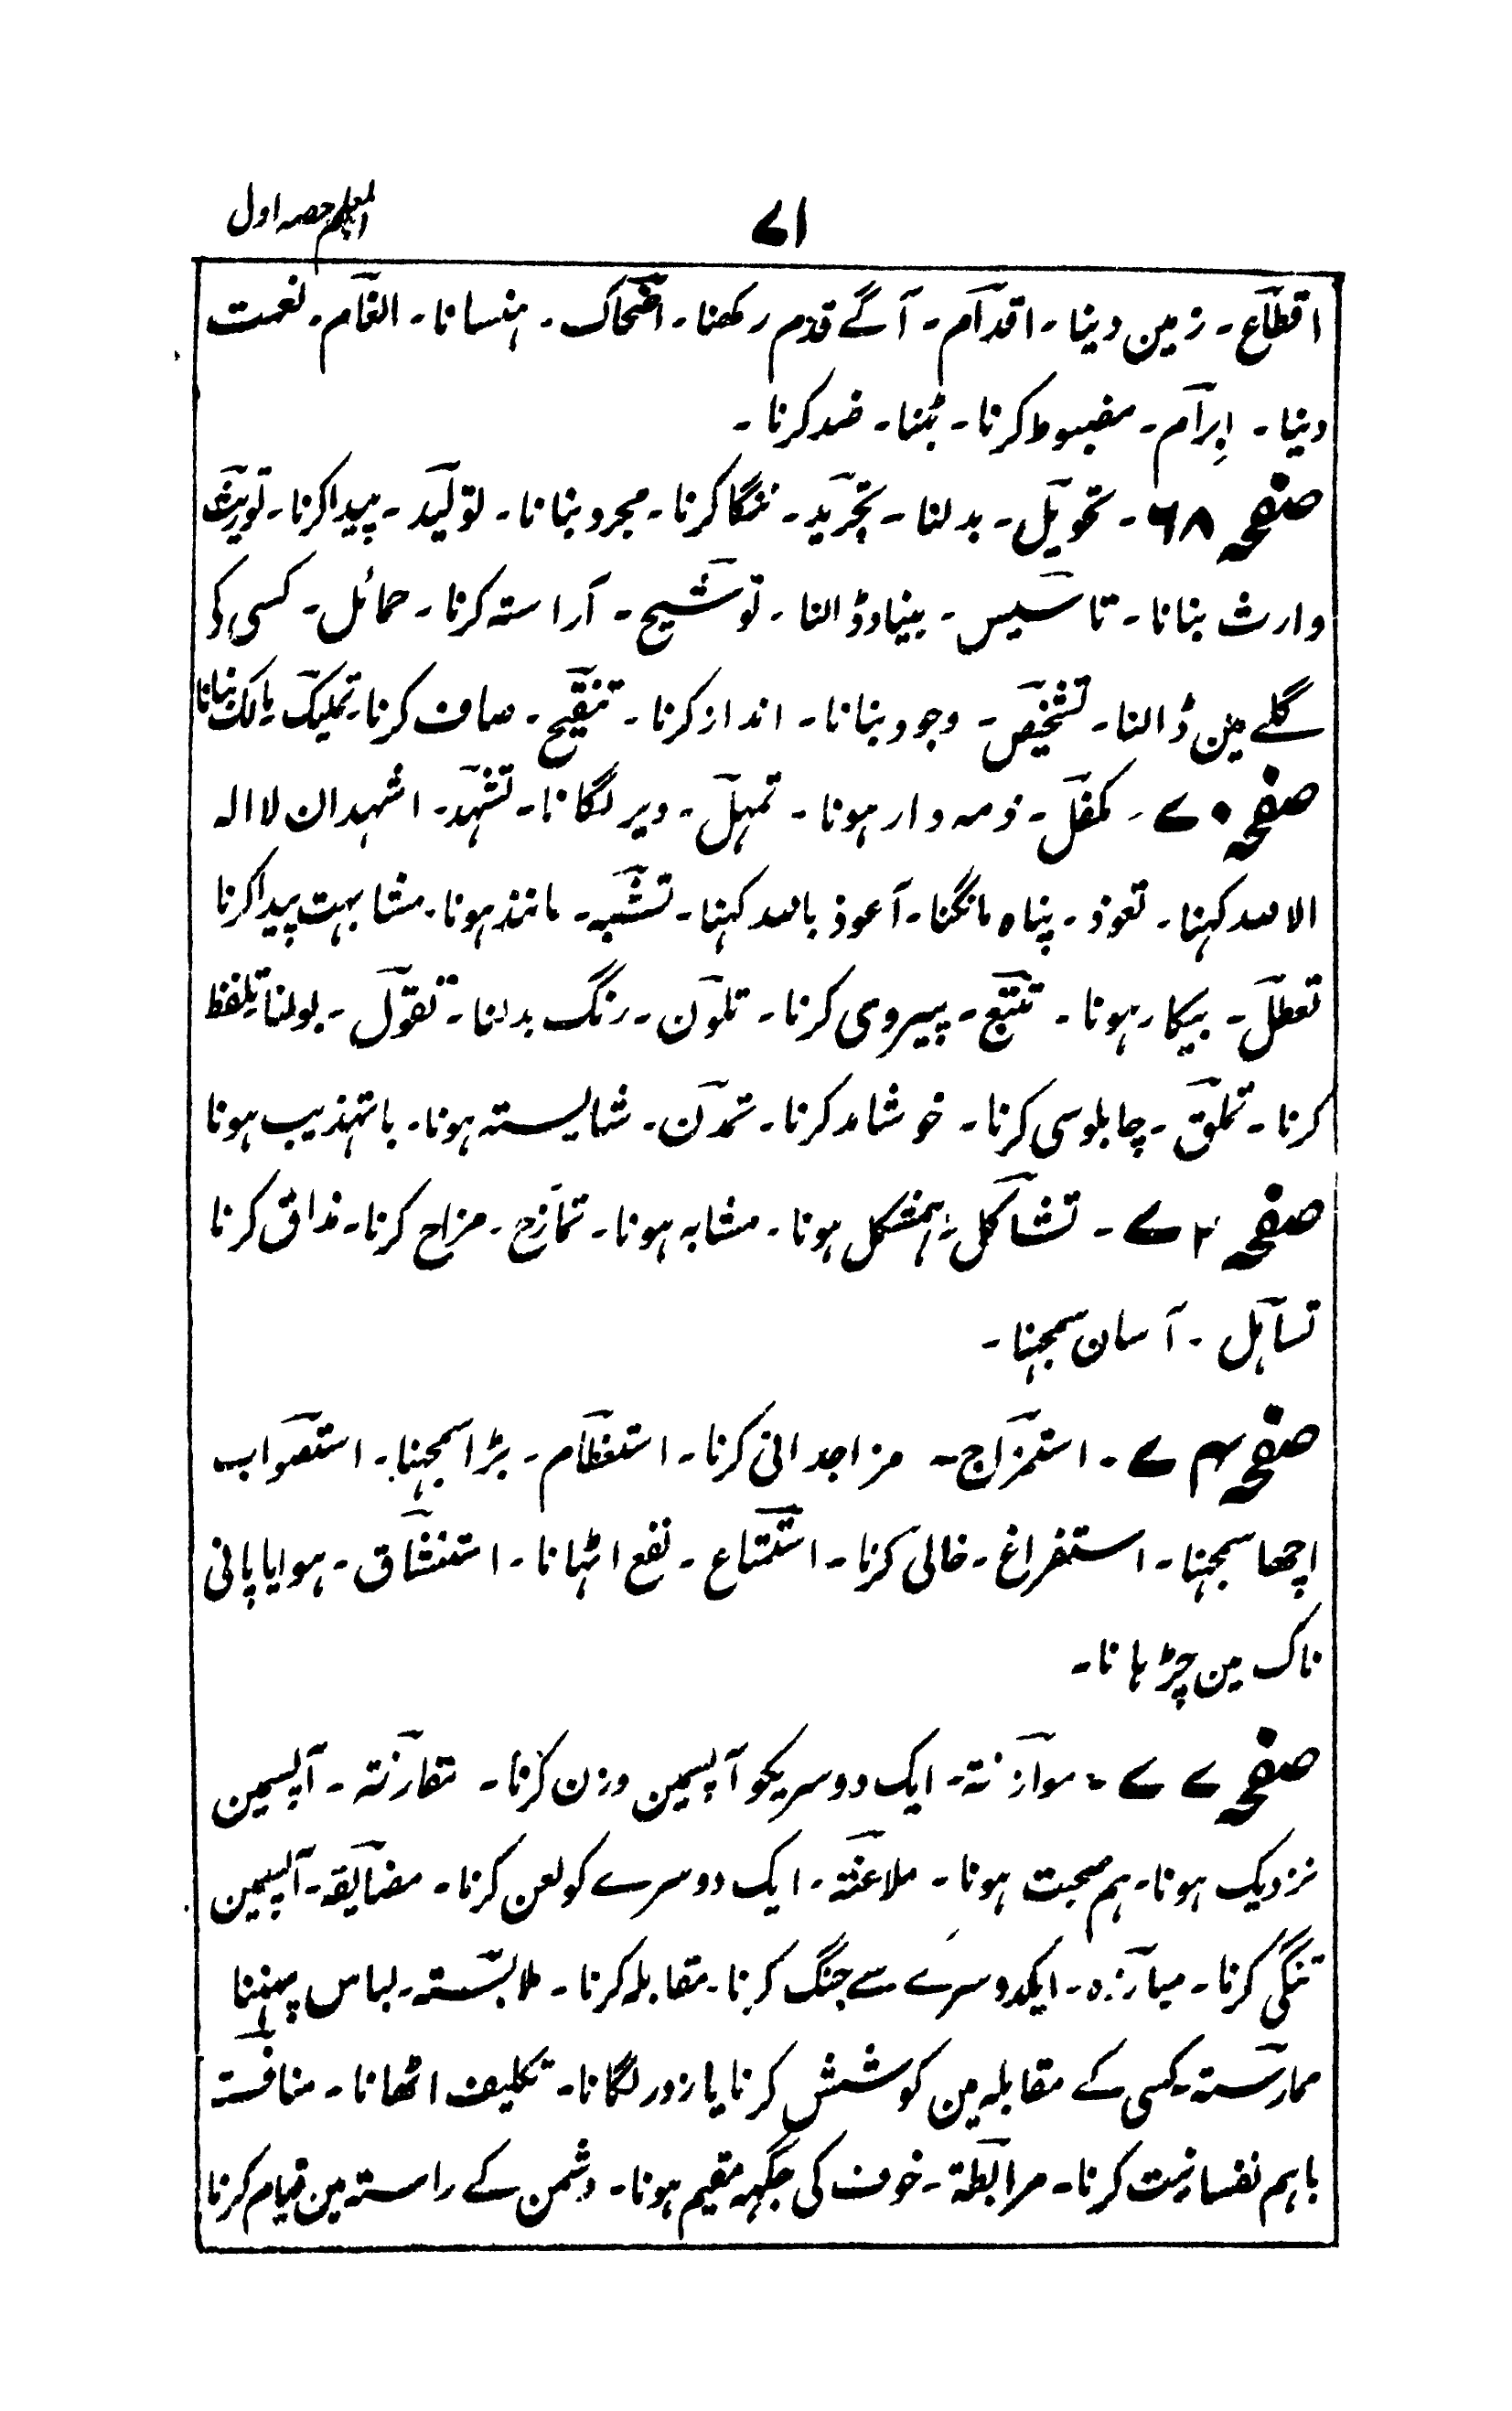 المعلم حصہ اول
۷۱
اقطاع۔ زمین دینا۔ اقدام۔ آگے قدم رکھنا۔ اضحاک۔ ہنسانا۔ انعام۔ نعمت
دینا۔ اِبرام۔ مضبوط کرنا۔ بٹنا۔ ضد کرنا۔
صفحہ ۶۸۔ تحویل۔ بدلنا۔ تجرید۔ ننگا کرنا۔ مجرد بنانا۔ تولید۔ پیدا کرنا۔ توریث
وارث بنانا۔ تاسیس۔ بنیاد ڈالنا۔ توشیح۔ آراستہ کرنا۔ حمائل۔ کسی کی
گلے مین ڈالنا۔ تشخیص۔ وجود بنانا۔ انداز کرنا۔ تنقیح۔ صاف کرنا۔ تملیک۔ مالک بنانا
صفحہ ۷۰۔ تکفل۔ ذمہ دار ہونا۔ تمہل۔ دیر لگانا۔ تشہد۔ اشہد ان لا الہ
الا اللہ کہنا۔ تعوذ۔ پناہ مانگنا۔ اعوذ باللہ کہنا۔ تشبہ۔ مانند ہونا۔ مشابہت پیدا کرنا
تعطل۔ بیکار ہونا۔ تتبع۔ پیروی کرنا۔ تلون۔ رنگ بدلنا۔ تقول۔ بولنا تلفظ
کرنا۔ تملق۔ چاپلوسی کرنا۔ خوشامد کرنا۔ تمدن۔ شایستہ ہونا۔ باتہذیب ہونا
صفحہ ۷۲۔ تشاکل۔ ہمشکل ہونا۔ مشابہ ہونا۔ تمازح۔ مزاح کرنا۔ مذاق کرنا
تساہل۔ آسان سمجہنا۔
صفحہ ۷۴۔ استمزاج۔ مزاجدانی کرنا۔ استعظام۔ بڑا سمجہنا۔ استصواب
اچھا سمجہنا۔ استفراغ۔ خالی کرنا۔ استمتاع۔ نفع اٹہانا۔ استنشاق۔ ہوا یا پانی
ناک مین چڑہانا۔
صفحہ ۷۷۔ موازنۃ۔ ایک دوسریکو آپسمین وزن کرنا۔ مقارنۃ۔ آپسمین
نزدیک ہونا۔ ہم صحبت ہونا۔ ملاعنۃ۔ ایک دوسرے کو لعن کرنا۔ مضایقہ۔ آپسمین
تنگی کرنا۔ مبارزہ۔ ایکدوسرے سے جنگ کرنا۔ مقابلہ کرنا۔ ملابستہ۔ لباس پہننا
ممارستہ۔ کسی کے مقابلہ مین کوشش کرنا یا زور لگانا۔ تکلیف اٹھانا۔ منافستہ
باہم نفسانیت کرنا۔ مرابطۃ۔ خوف کی جگہہ مقیم ہونا۔ دشمن کے راستہ مین قیام کرنا